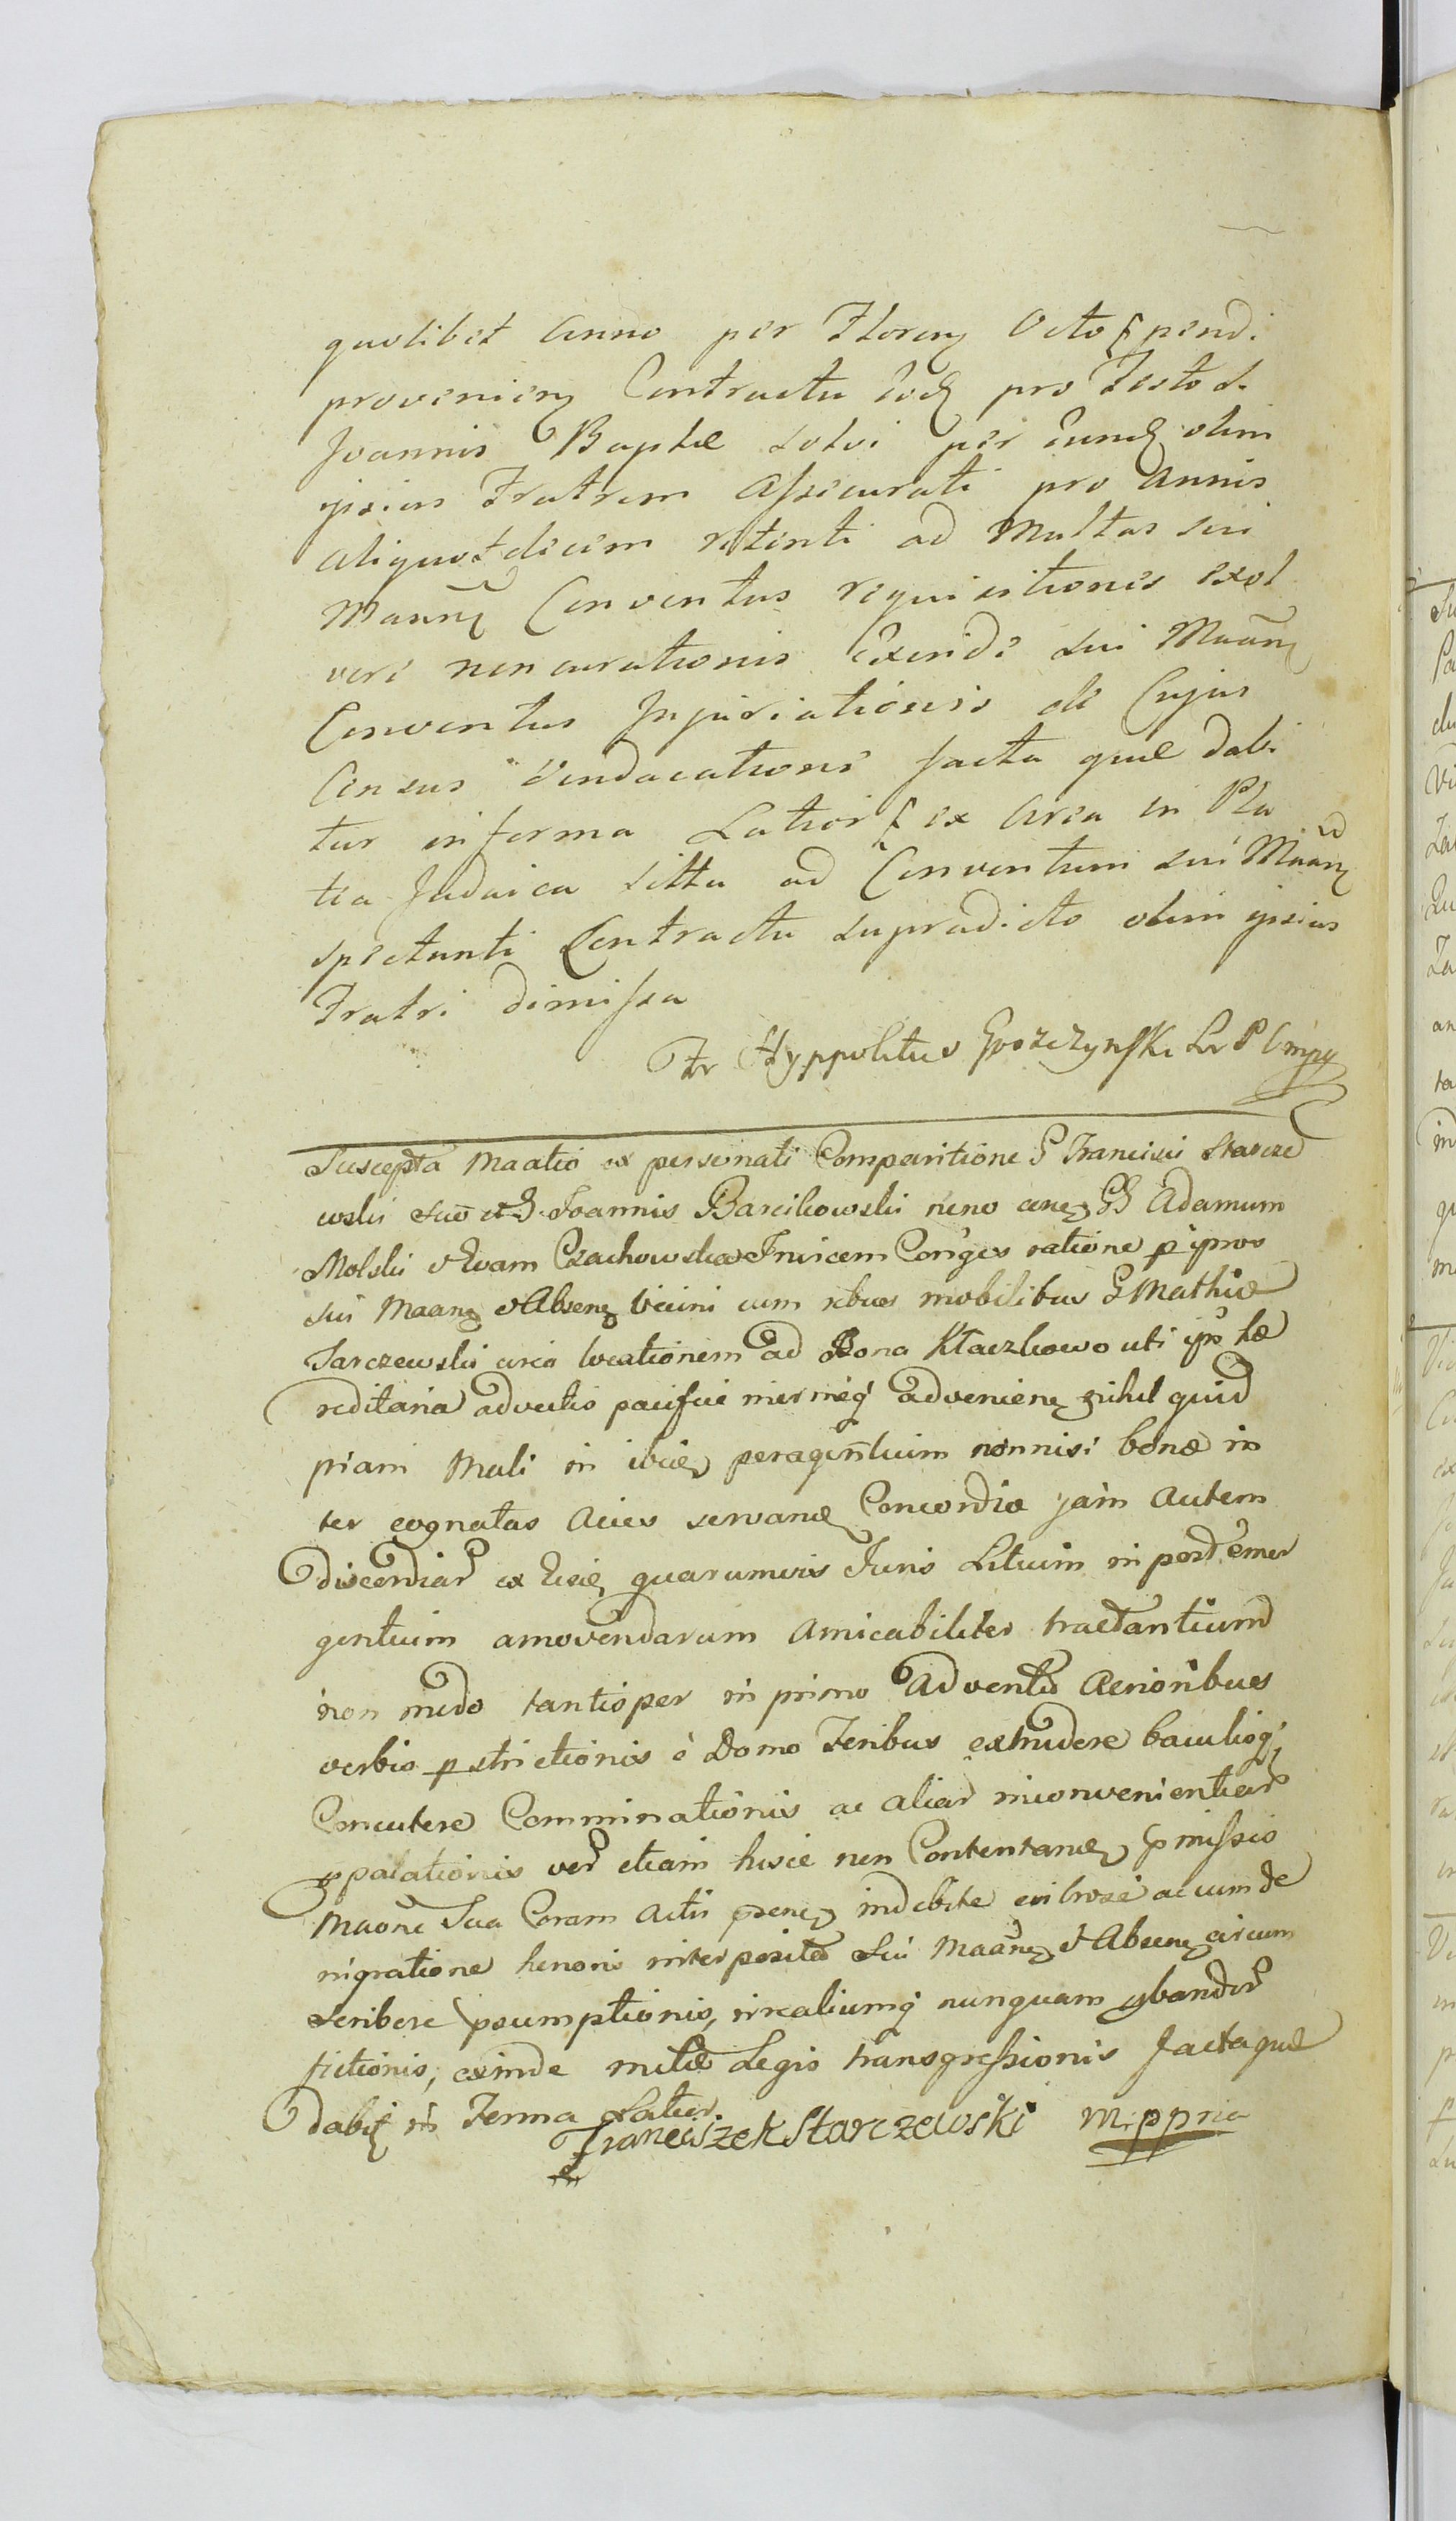 quolibet Anno per Floren Octo pend.
provenien Contractu Eod pro Festo S.
Joannis Baptae solvi per Eund olim
ipsius Fratrem Assecurati pro Annis
Aliquot decim retenti ad Multas sui
Maan Conventus requisitiones exol
veri non curationis Exinde sui Maan
Conventus Injuriationis de Cujus
Census Vindacatione facta quae dabi
tur in forma Latior ex Area in Pla
tea Judaica sitta ad Conventum sui Maan
spectanti Contractu supradicto olim ipsius
Fratri dimissa
Fr Hyppolitus Goszczynski
Suscepta Maatio ex personali Comparitione G Francisci Starcze
wski suo et G Joannis Barcikowski neno cnes GG Adamum
Molski et Evam Czachowska Invicem Conges ratione p ipsos
sui Maane et Absene Vicini cum rebus mobilibus G Mathiae
Tarczewski circa locationem ad Bona Kłaczkowo uti ips hae
reditaria advectis pacifice niermeq advenienc nihil quid
piam Mali in ibid peragentium nonnisi bonae in
ter cognatas Acies servand Concordiae jam Autem
discordiar ex quarumvis Juris Litium in post emer
gentium amovendarum Amicabiliter tractantium
non modo tantisper in primo Adventu Acrioribus
verbis pstrictionis è Domo Foribus extrudere baculisq
Concutere Comminationis ac aliar inconvenientiar
ppalationis ver etiam hisce non Contentand pmissis
Maone Sua Coram Actis psene indebite ac cum de
nigratione honoris interposita sui Maane et Absene circum
scribere psumptionis, irrealiumq nunquam
fictionis, exinde Legis transgressionis factaque
dabit in Forma Latior
Franciszek Starczewski m. ppria